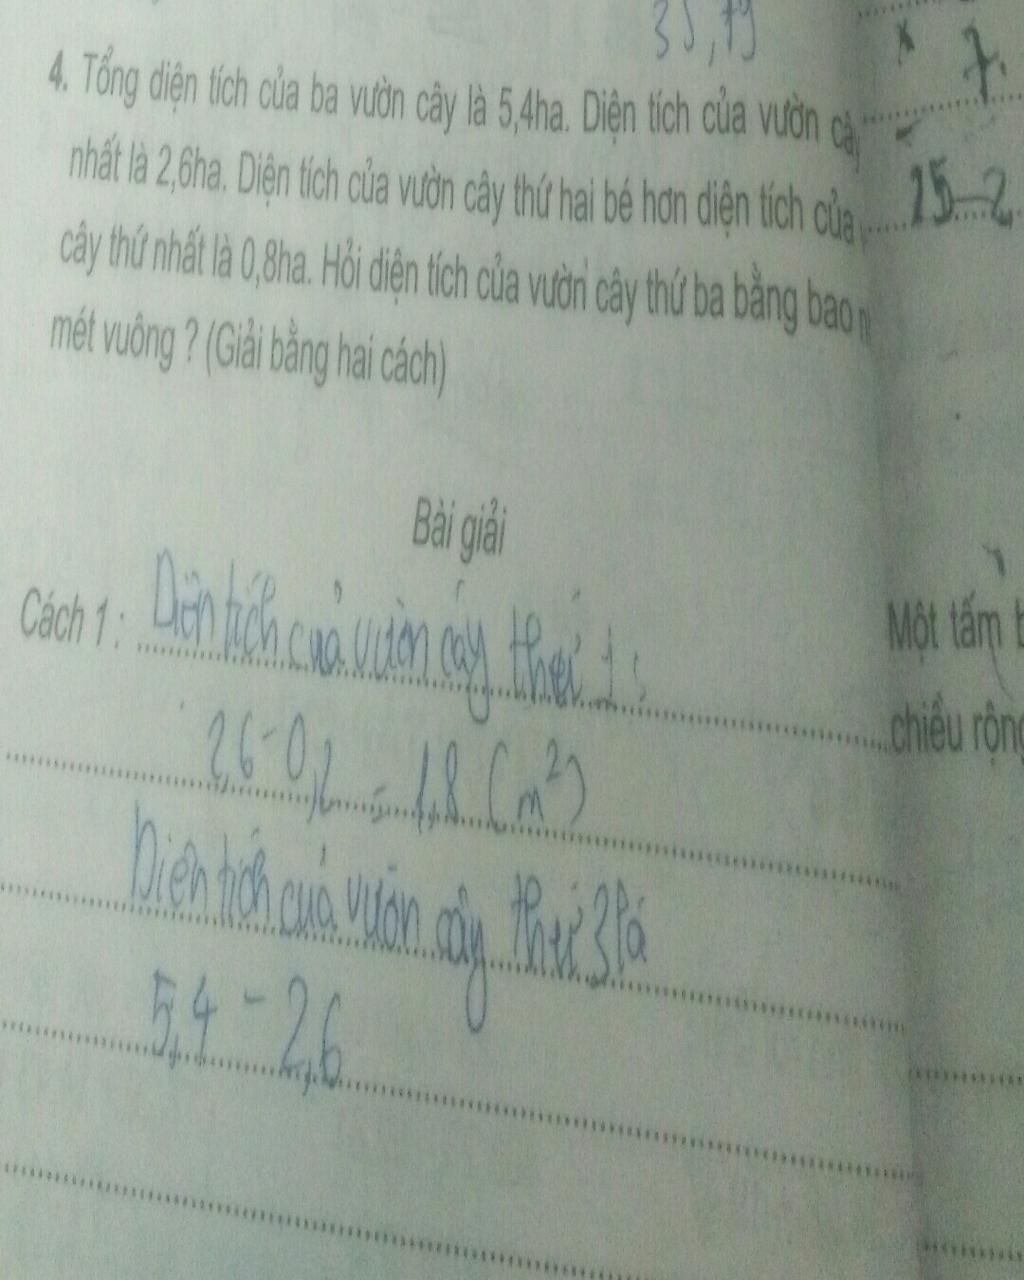 35,79
4. Tổng diện tích của ba vườn cây là 5,4ha. Diện tích của vườn cây
nhất là 2,6ha. Diện tích của vườn cây thứ hai bé hơn diện tích của
cây thứ nhất là 0,8ha. Hỏi diện tích của vườn cây thứ ba bằng bao
mét vuông ? (Giải bằng hai cách)
Bài giải
Cách 1 : Diện tích của vườn cây thứ 1 :
2,6 - 0,8 = 1,8 (m²)
Diện tích của vườn cây thứ 3 là
5,4 - 2,6
x 7.
15-2
Một tấm b
chiều rộng